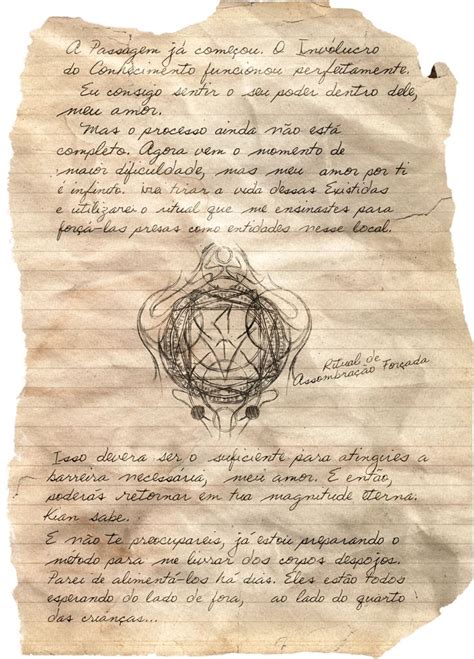 A Passagem já começou. O Invólucro
do Conhecimento funcionou perfeitamente.
Eu consigo sentir o seu poder dentro dele,
meu amor.
Mas o processo ainda não está
completo. Agora vem o momento de
maior dificuldade, mas meu amor por ti
é infinito. Irei tirar a vida dessas Existidas
e utilizarei o ritual que me ensinastes para
forçá-las presas como entidades nesse local.
Ritual de
Assombração Forçada
Isso devera ser o suficiente para atingires a
barreira necessária, meu amor. E então,
poderás retornar em tua magnitude eterna.
Kian sabe.
E não te preocupareis, já estou preparando o
método para me livrar dos corpos despojos.
Parei de alimentá-los há dias. Eles estão todos
esperando do lado de fora, ao lado do quarto
das crianças...